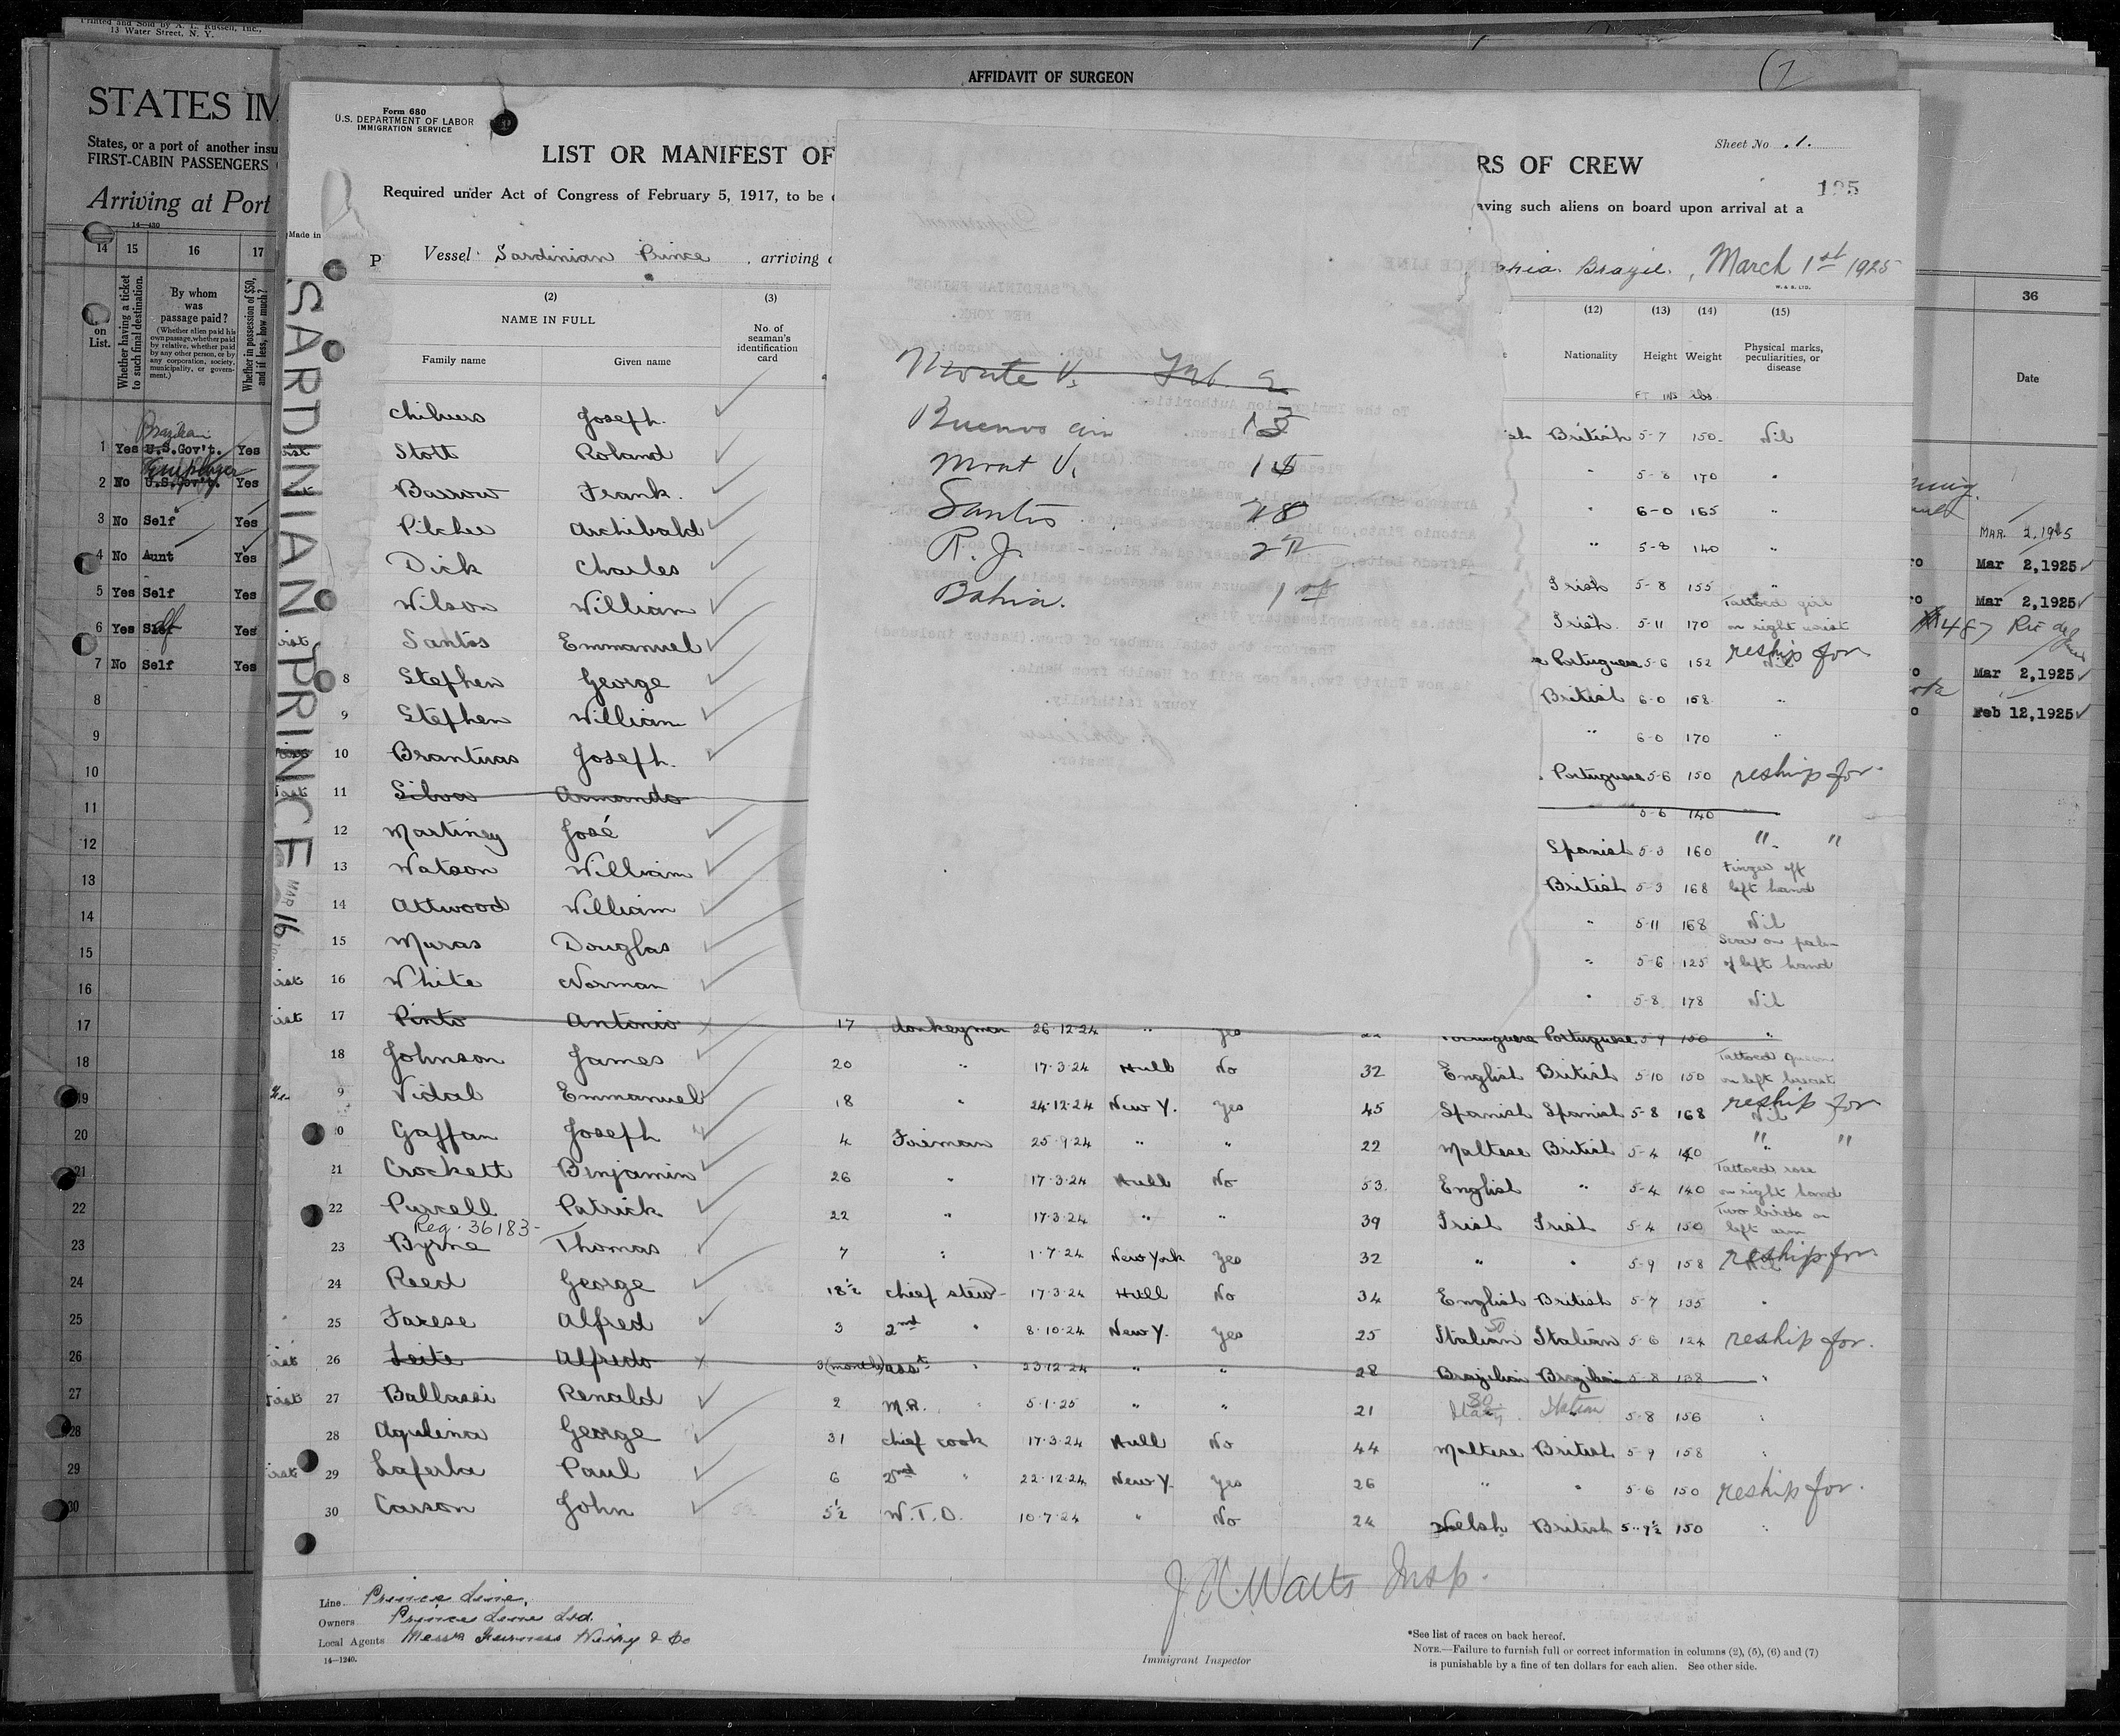 Printed and Sold by A. L. Russell, Inc.,
13 Water Street, N. Y.
AFFIDAVIT OF SURGEON
STATES IM
States, or a port of another insu
FIRST-CABIN PASSENGERS
Arriving at Port
14—430
14 15 16 17
on List.
Whether having a ticket to such final destination.
By whom was passage paid?
(Whether alien paid his own passage, whether paid by relative, whether paid by any other person, or by any corporation, society, municipality, or government.)
Whether in possession of $50, and if less, how much?
Brazilian
1 Yes U.S.Gov't. Yes
Employer
2 No U.S.Gov't. Yes
3 No Self Yes
4 No Aunt Yes
5 Yes Self Yes
6 Yes Self Yes
7 No Self Yes
8
9
10
11
12
13
14
15
16
17
18
19
20
21
22
23
24
25
26
27
28
29
30
Form 680
U.S. DEPARTMENT OF LABOR
IMMIGRATION SERVICE
Sheet No. 1.
LIST OR MANIFEST OF
RS OF CREW
125
Required under Act of Congress of February 5, 1917, to be
aving such aliens on board upon arrival at a
Made in
P
Vessel Sardinian Prince, arriving
Brazil, March 1st 1925
W. & S. LTD.
SARDINIAN PRINCE
MAR 16
(2) (3) (12) (13) (14) (15)
NAME IN FULL
Family name Given name
No. of seaman's identification card
Nationality Height Weight Physical marks, peculiarities, or disease
FT INS lbs.
Monte V. Feb. 2
Buenos Air 13
Mont V. 15
Santos 28
R. J. 2
Bahia. 1st
Chilvers Joseph. British 5-7 150 Nil
Stott Roland " 5-8 170 "
Barrow Frank. " 6-0 165 "
Pilcher Archibald " 5-8 140 "
Dick Charles Irish 5-8 155 "
Wilson William Irish 5-11 170 Tattoed girl on right wrist
Santos Emmanuel Portuguese 5-6 152 Nil reship for
8 Stephen George British 6-0 158 "
9 Stephen William " 6-0 170 "
10 Brantuas Joseph. Portuguese 5-6 150 reship for
11 Silva Armando 5-6 140
12 Martiney José Spanish 5-3 160 " "
13 Watson William British 5-3 168 Finger off left hand
14 Attwood William " 5-11 168 Nil
15 Muras Douglas " 5-6 125 Scar on palm of left hand
16 White Norman " 5-8 178 Nil
17 Pinto Antonio 17 donkeyman 26-12-24 " yes 22 Portuguese Portuguese 5-9 150 "
18 Johnson James 20 " 17-3-24 Hull No 32 English British 5-10 150 Tattoed Queen on left breast
9 Vidal Emmanuel 18 " 24-12-24 New Y. yes 45 Spanish Spanish 5-8 168 Nil reship for
0 Gaffan Joseph 4 Fireman 25-9-24 " " 22 Maltese British 5-4 140 " "
21 Crockett Benjamin 26 " 17-3-24 Hull No 53 English " 5-4 140 Tattoed rose on right hand
22 Purcell Patrick 22 " 17-3-24 " " 39 Irish Irish 5-4 150 Two birds on left arm
Reg. 36183-
23 Byrne Thomas 7 " 1-7-24 New York Yes 32 " " 5-9 158 Nil reship for
24 Reed George 18½ chief stew- 17-3-24 Hull No 34 English British 5-7 135 "
25 Farese Alfred 3 2nd " 8-10-24 New Y. yes 25 Italian Italian 5-6 124 reship for.
26 Leite Alfredo 3(months) asst " 23-12-24 " " 28 Brazilian Brazilian 5-8 138 "
27 Ballassi Renald 2 M.R. " 5-1-25 " " 21 Italian 5-8 156 "
28 Aquilina George 31 chief cook 17-3-24 Hull No 44 Maltese British 5-9 158 "
29 Laferla Paul 6 2nd " 22-12-24 New Y. yes 26 " " 5-6 150 reship for.
30 Carson John 5½ W.T.O. 10-7-24 " No 24 Welsh British 5-9½ 150 "
Line Prince Line,
Owners Prince Line Ltd.
Local Agents Messrs Furness Withy & Co
14—1240.
J. H. Watts Insp.
Immigrant Inspector
*See list of races on back hereof.
NOTE.—Failure to furnish full or correct information in columns (2), (5), (6) and (7)
is punishable by a fine of ten dollars for each alien. See other side.
36
Date
MAR. 2, 1925
Mar 2,1925
Mar 2,1925
487 Rio de
Mar 2,1925
Feb 12,1925